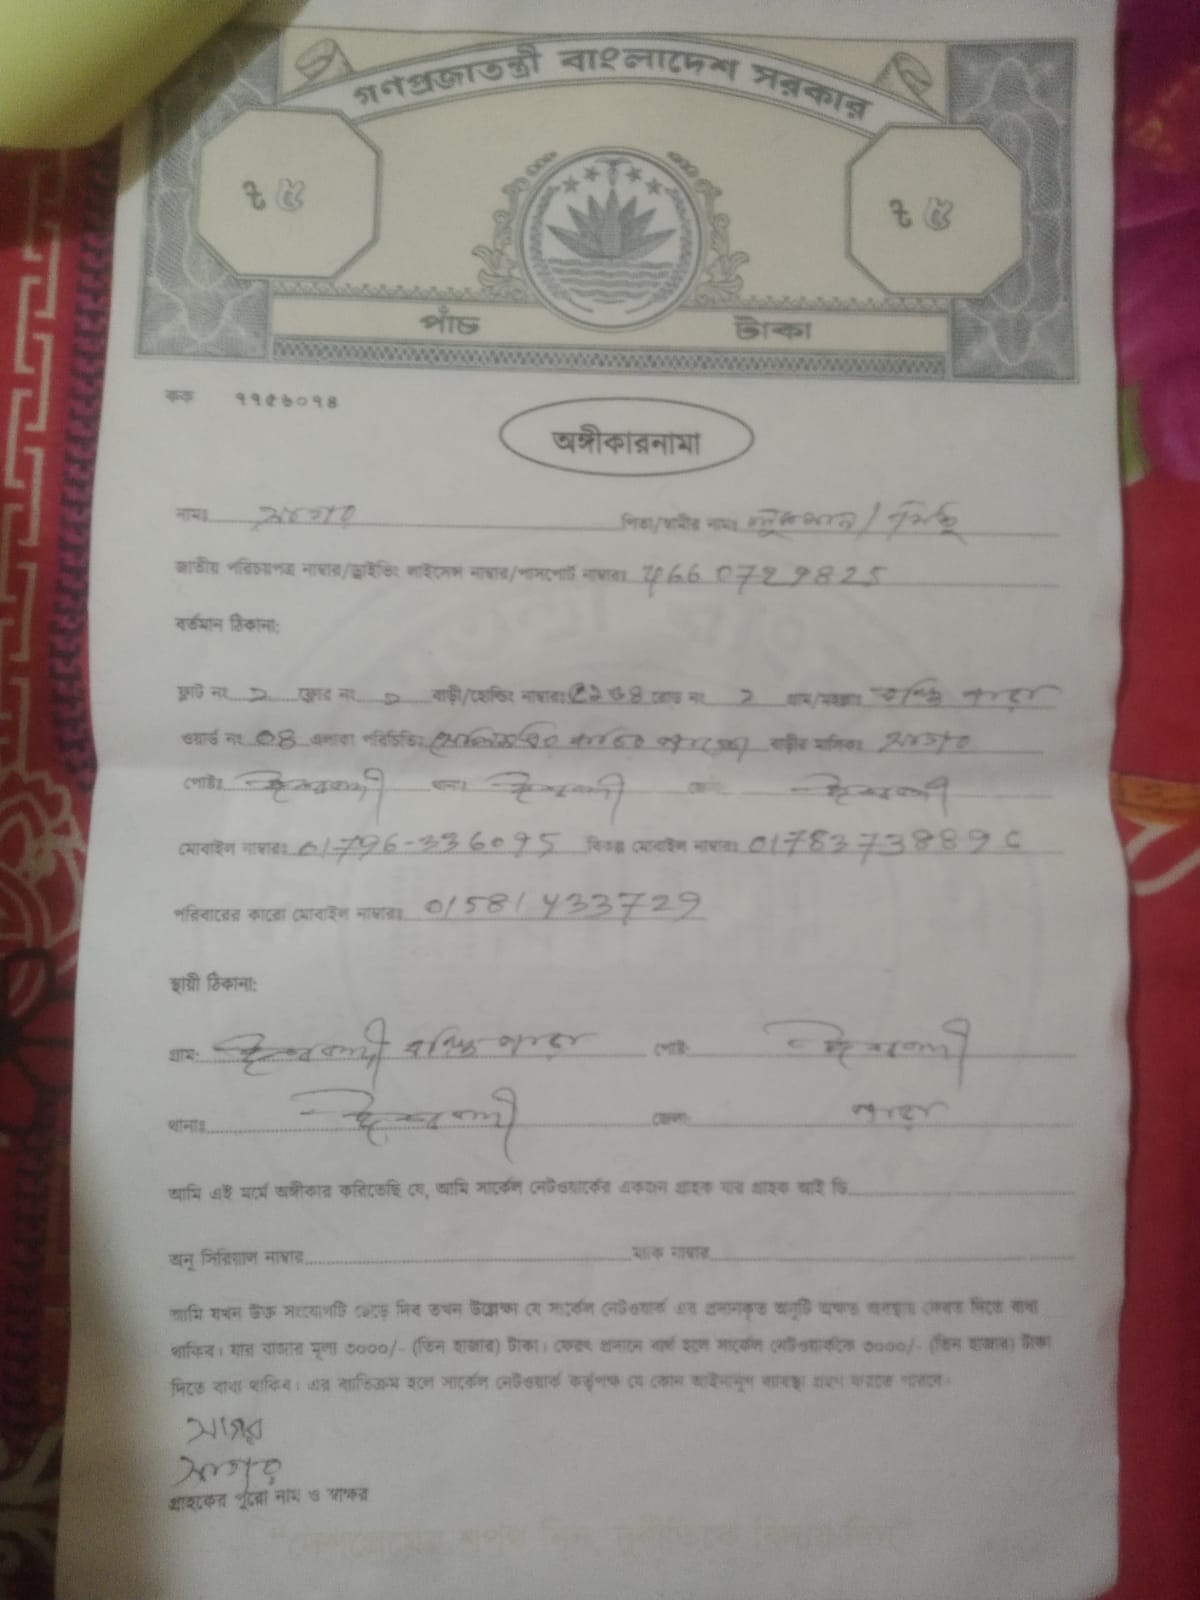 গণপ্রজাতন্ত্রী বাংলাদেশ সরকার
৳ ৫ ৳ ৫
পাঁচ টাকা
কক ৭৭৫৬০৭৪
অঙ্গীকারনামা
নামঃ সাগর পিতা/স্বামীর নামঃ
জাতীয় পরিচয়পত্র নাম্বার/ড্রাইভিং লাইসেন্স নাম্বার/পাসপোর্ট নাম্বারঃ 4660729825
বর্তমান ঠিকানা:
ফ্লাট নং ফ্লোর নং বাড়ী/হোল্ডিং নাম্বারঃ রোড নং ২ গ্রাম/মহল্লাঃ
ওয়ার্ড নং 08 এলাকা পরিচিতিঃ বাড়ীর মালিকঃ সাগর
পোষ্টঃ ঈশ্বরদী থানাঃ ঈশ্বরদী ঈশ্বরদী
মোবাইল নাম্বারঃ 01796-336095 বিকল্প মোবাইল নাম্বারঃ
পরিবারের কারো মোবাইল নাম্বারঃ 01581433729
স্থায়ী ঠিকানা:
গ্রাম: ঈশ্বরদী পাড়া পোষ্ট: ঈশ্বরদী
থানাঃ ঈশ্বরদী জেলা:
আমি এই মর্মে অঙ্গীকার করিতেছি যে, আমি সার্কেল নেটওয়ার্কের একজন গ্রাহক যার গ্রাহক আই ডি
অনু সিরিয়াল নাম্বার ম্যাক নাম্বার
আমি যখন উক্ত সংযোগটি ছেড়ে দিব তখন উল্লেখ্য যে সার্কেল নেটওয়ার্ক এর প্রদানকৃত অনুটি অক্ষত অবস্থায় ফেরত দিতে বাধ্য
থাকিব। যার বাজার মূল্য ৩০০০/- (তিন হাজার) টাকা। ফেরৎ প্রদানে ব্যর্থ হলে সার্কেল নেটওয়ার্ককে ৩০০০/- (তিন হাজার) টাকা
দিতে বাধ্য থাকিব। এর ব্যতিক্রম হলে সার্কেল নেটওয়ার্ক কর্তৃপক্ষ যে কোন আইনানুগ ব্যবস্থা গ্রহণ করতে পারবে।
সাগর
সাগর
গ্রাহকের পুরো নাম ও স্বাক্ষর